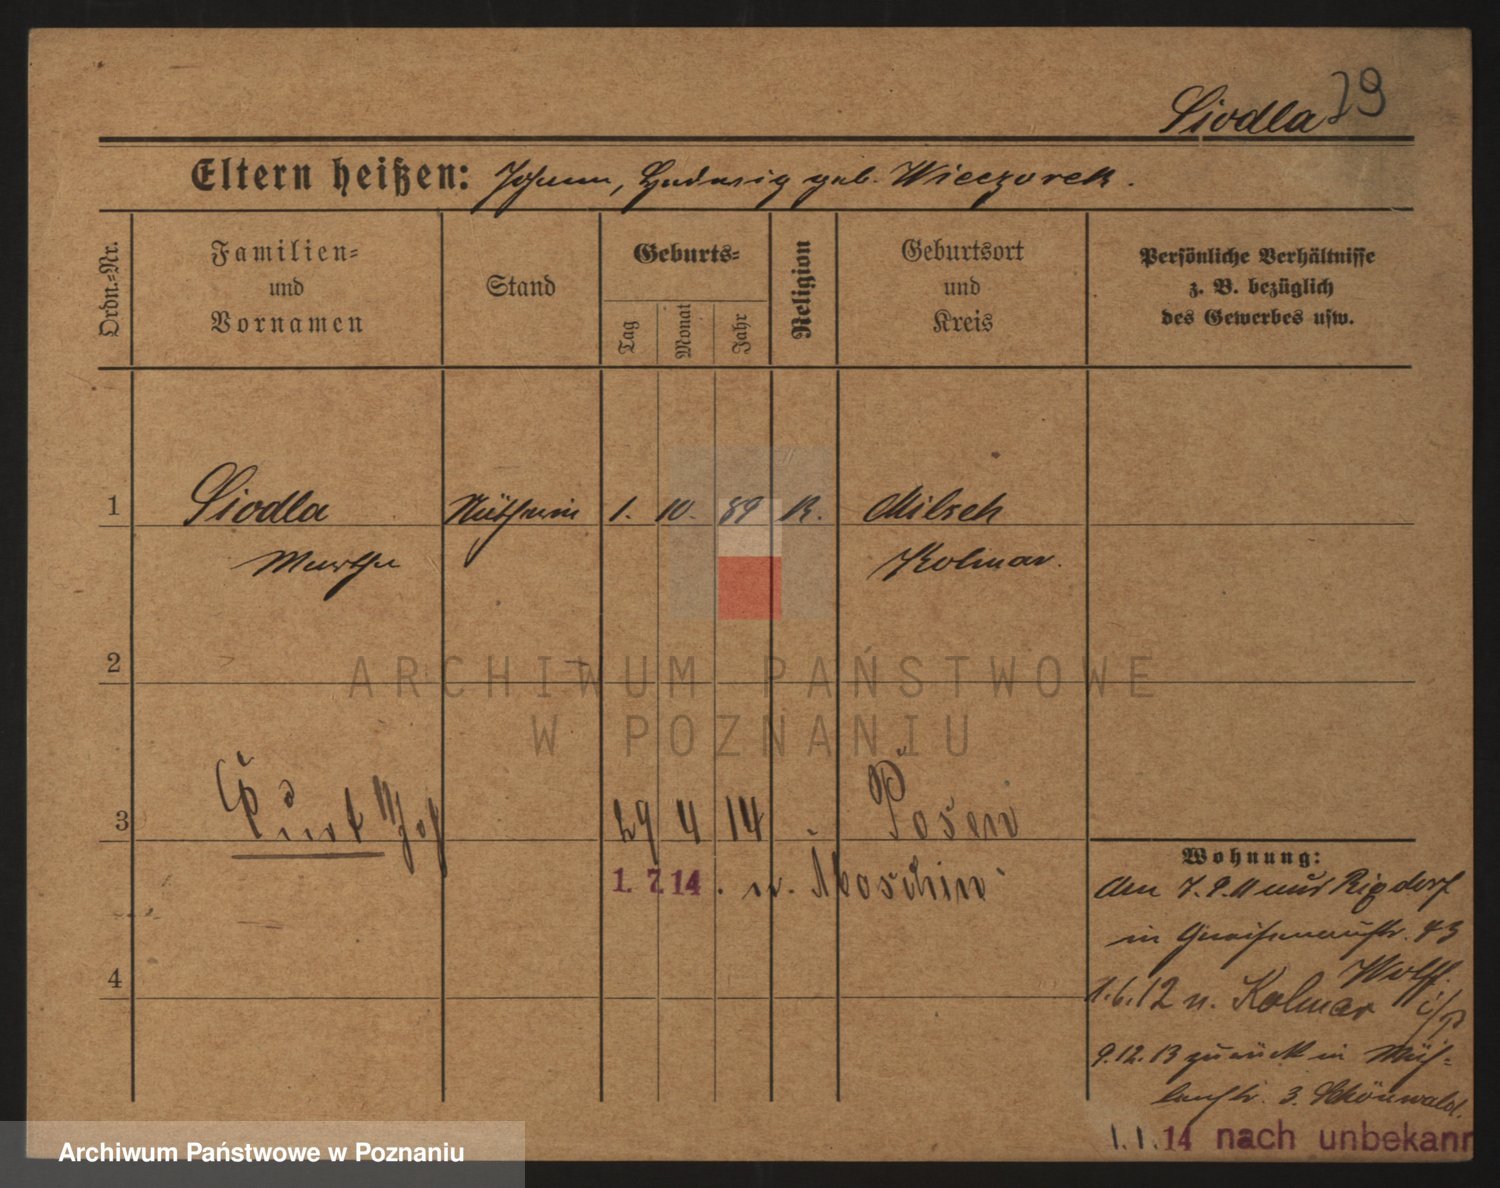 Siodla 29
Eltern heißen: Johann, Hedwig geb. Wieczorek.
Ordn.-Nr.
Familien-
und
Vornamen
Stand
Geburts-
Tag
Monat
Jahr
Religion
Geburtsort
und
Kreis
Persönliche Verhältnisse
z. B. bezüglich
des Gewerbes usw.
1 Siodla Näherin 1. 10. 89 K. Milsch
Martha Kolmar.
2
ARCHIWUM PAŃSTWOWE
W POZNANIU
3 Kurt 29 4 14 Posen
1. 7. 14. n. Moschin
Wohnung:
Am 7. 9. 11 aus Rixdorf
in Gneisenaustr. 43
Wolff.
1.6.12 n. Kolmar i/P
9.12.13 zurück in Müh-
lenstr. 3. Schönwald.
4
1.1.14 nach unbekann
Archiwum Państwowe w Poznaniu